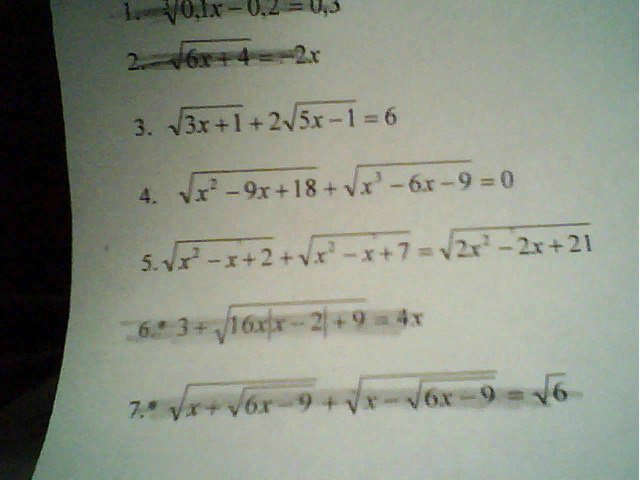 1. ∛0,1x – 0,2 = 0,3
2. – √(6x + 4) = – 2x
3. √(3x + 1) + 2√(5x – 1) = 6
4. √(x² – 9x + 18) + √(x³ – 6x – 9) = 0
5. √(x² – x + 2) + √(x² – x + 7) = √(2x² – 2x + 21)
6.* 3 + √(16x|x – 2| + 9) = 4x
7.* √(x + √(6x – 9)) + √(x – √(6x – 9)) = √6